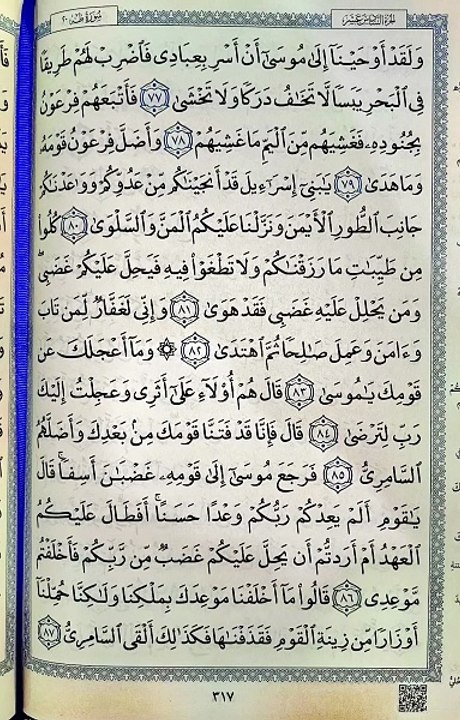 الجزء السادس عشر سورة طه ٢٠
وَلَقَدْ أَوْحَيْنَآ إِلَىٰ مُوسَىٰٓ أَنْ أَسْرِ بِعِبَادِى فَٱضْرِبْ لَهُمْ طَرِيقًا
فِى ٱلْبَحْرِ يَبَسًا لَّا تَخَـٰفُ دَرَكًا وَلَا تَخْشَىٰ ٧٧ فَأَتْبَعَهُمْ فِرْعَوْنُ
بِجُنُودِهِۦ فَغَشِيَهُم مِّنَ ٱلْيَمِّ مَا غَشِيَهُمْ ٧٨ وَأَضَلَّ فِرْعَوْنُ قَوْمَهُۥ
وَمَا هَدَىٰ ٧٩ يَـٰبَنِىٓ إِسْرَٰٓءِيلَ قَدْ أَنجَيْنَـٰكُم مِّنْ عَدُوِّكُمْ وَوَٰعَدْنَـٰكُمْ
جَانِبَ ٱلطُّورِ ٱلْأَيْمَنَ وَنَزَّلْنَا عَلَيْكُمُ ٱلْمَنَّ وَٱلسَّلْوَىٰ ٨٠ كُلُوا۟
مِن طَيِّبَـٰتِ مَا رَزَقْنَـٰكُمْ وَلَا تَطْغَوْا۟ فِيهِ فَيَحِلَّ عَلَيْكُمْ غَضَبِى ۖ
وَمَن يَحْلِلْ عَلَيْهِ غَضَبِى فَقَدْ هَوَىٰ ٨١ وَإِنِّى لَغَفَّارٌ لِّمَن تَابَ
وَءَامَنَ وَعَمِلَ صَـٰلِحًا ثُمَّ ٱهْتَدَىٰ ٨٢ ۞ وَمَآ أَعْجَلَكَ عَن
قَوْمِكَ يَـٰمُوسَىٰ ٨٣ قَالَ هُمْ أُو۟لَآءِ عَلَىٰٓ أَثَرِى وَعَجِلْتُ إِلَيْكَ
رَبِّ لِتَرْضَىٰ ٨٤ قَالَ فَإِنَّا قَدْ فَتَنَّا قَوْمَكَ مِنۢ بَعْدِكَ وَأَضَلَّهُمُ
ٱلسَّامِرِىُّ ٨٥ فَرَجَعَ مُوسَىٰٓ إِلَىٰ قَوْمِهِۦ غَضْبَـٰنَ أَسِفًا ۚ قَالَ
يَـٰقَوْمِ أَلَمْ يَعِدْكُمْ رَبُّكُمْ وَعْدًا حَسَنًا ۚ أَفَطَالَ عَلَيْكُمُ
ٱلْعَهْدُ أَمْ أَرَدتُّمْ أَن يَحِلَّ عَلَيْكُمْ غَضَبٌ مِّن رَّبِّكُمْ فَأَخْلَفْتُم
مَّوْعِدِى ٨٦ قَالُوا۟ مَآ أَخْلَفْنَا مَوْعِدَكَ بِمَلْكِنَا وَلَـٰكِنَّا حُمِّلْنَآ
أَوْزَارًا مِّن زِينَةِ ٱلْقَوْمِ فَقَذَفْنَـٰهَا فَكَذَٰلِكَ أَلْقَى ٱلسَّامِرِىُّ ٨٧
٣١٧